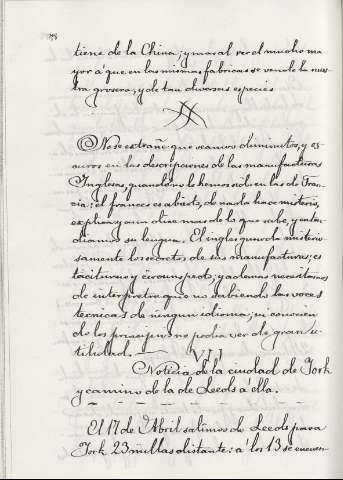 tiene de la China; y mas al ver el mucho ma
yor á que en las mismas fabricas se vende la nues
tra grosera; y de tan diversas especies
No se extrañe que seamos diminutos, y os-
curos en las descripciones de las manufacturas
Inglesas, quando no lo hemos sido en las de Fran-
cia: el frances es abierto, de nada hace misterio,
explica y aun dice mas de lo que sabe, y enten-
diamos su lengua. El ingles guarda misterio
samente los secretos de sus manufacturas; es
taciturno y circunspecto; y ademas necesitamos
de interprete que no sabiendo las voces
tecnicas de ningun idioma, ni conocien
do los principios no podia ver de gran u-
tilidad.
VII
Noticia de la ciudad de York
y camino de la de Leeds á ella.
El 17 de Abril salimos de Leeds para
York 23 millas distante: á los 13 se encuen-